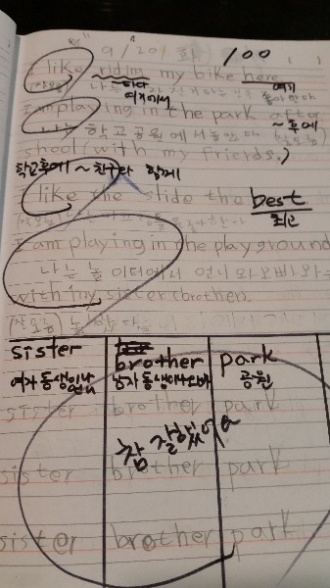 9/20 화 100
I like ridim my bike here.
타다 여기
여기에서 좋아한다
I am playing in the park after
나는 학교 공원에서 ~후에
shool (with my friends.)
학교후에 ~친구다 함께
I like the slide the best
최고
I am playing in the playground
나는 놀이터에서 언니와오빠와
with my sister (brother).
sister brother park
여자 동생이나 언니 남자 동생이나오빠 공원
sister brother park
참 잘했어요
sister brother park
sister brother park